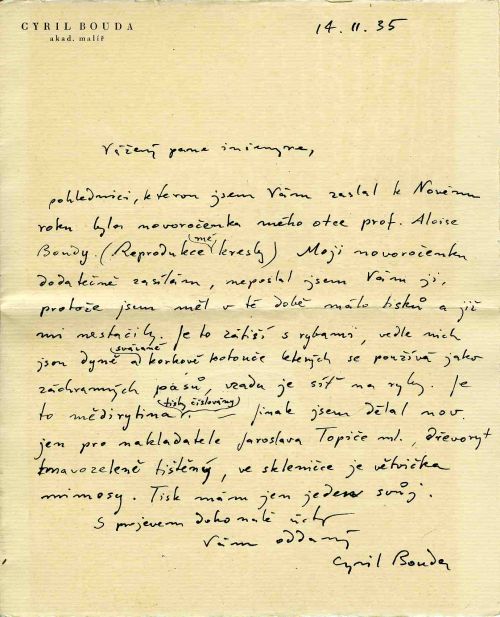 CYRIL BOUDA
akad. malíř
14. II. 35
Vážený pane inženýre,
pohlednicí, kterou jsem Vám zaslal k Novému
roku byla novoročenka mého otce prof. Aloise
Boudy. (Reprodukce mé kresby) Moji novoročenku
dodatečně zasílám, neposlal jsem Vám ji,
protože jsem měl v té době málo tisků a již
mi nestačily. Je to zátiší s rybami, vedle nich
jsou dýně a svázané korkové kotouče kterých se používá jako
záchranných pásů, vzadu je síť na ryby. Je
to mědirytina. tisky číslovány Jinak jsem dělal nov.
jen pro nakladatele Jaroslava Topiče ml., dřevoryt
tmavozeleně tištěný, ve skleničce je větvička
mimosy. Tisk mám jen jeden svůj.
S projevem dokonalé úcty
Vám oddaný
Cyril Bouda